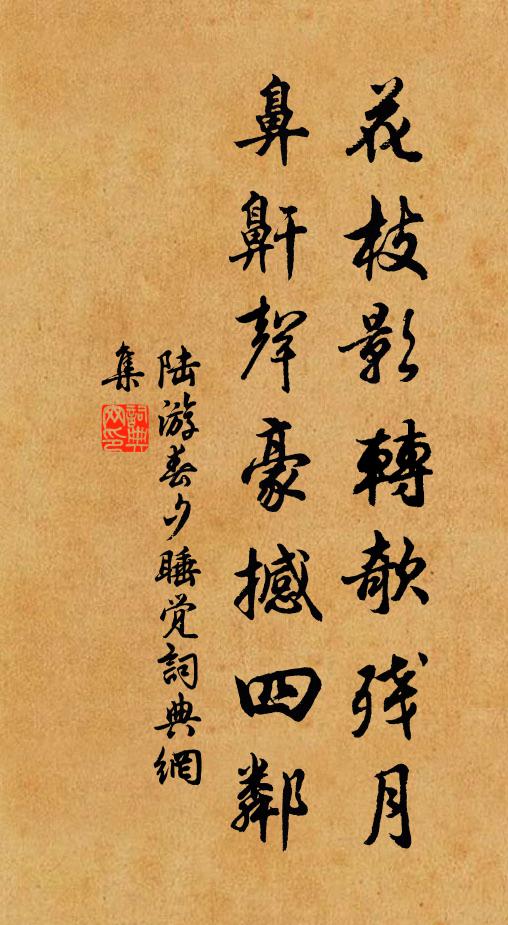 花枝影轉欹殘月
鼻鼾聲豪撼四鄰
陸游春夕睡覺詞典網
集
詞典
网印